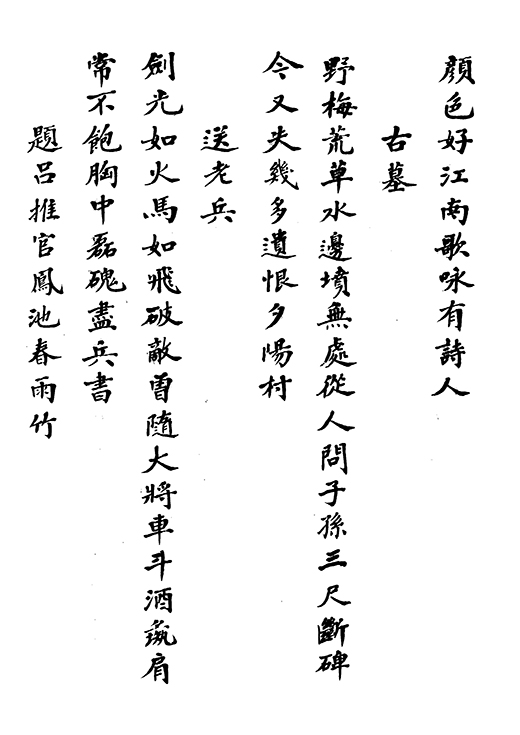 顏色好江南歌咏有詩人
古墓
野梅荒草水邊墳無處從人問子孫三尺斷碑
今又失幾多遺恨夕陽村
送老兵
劍光如火馬如飛破敵曽隨大將車斗酒彘肩
常不飽胸中磊磈盡兵書
題呂推官鳳池春雨竹